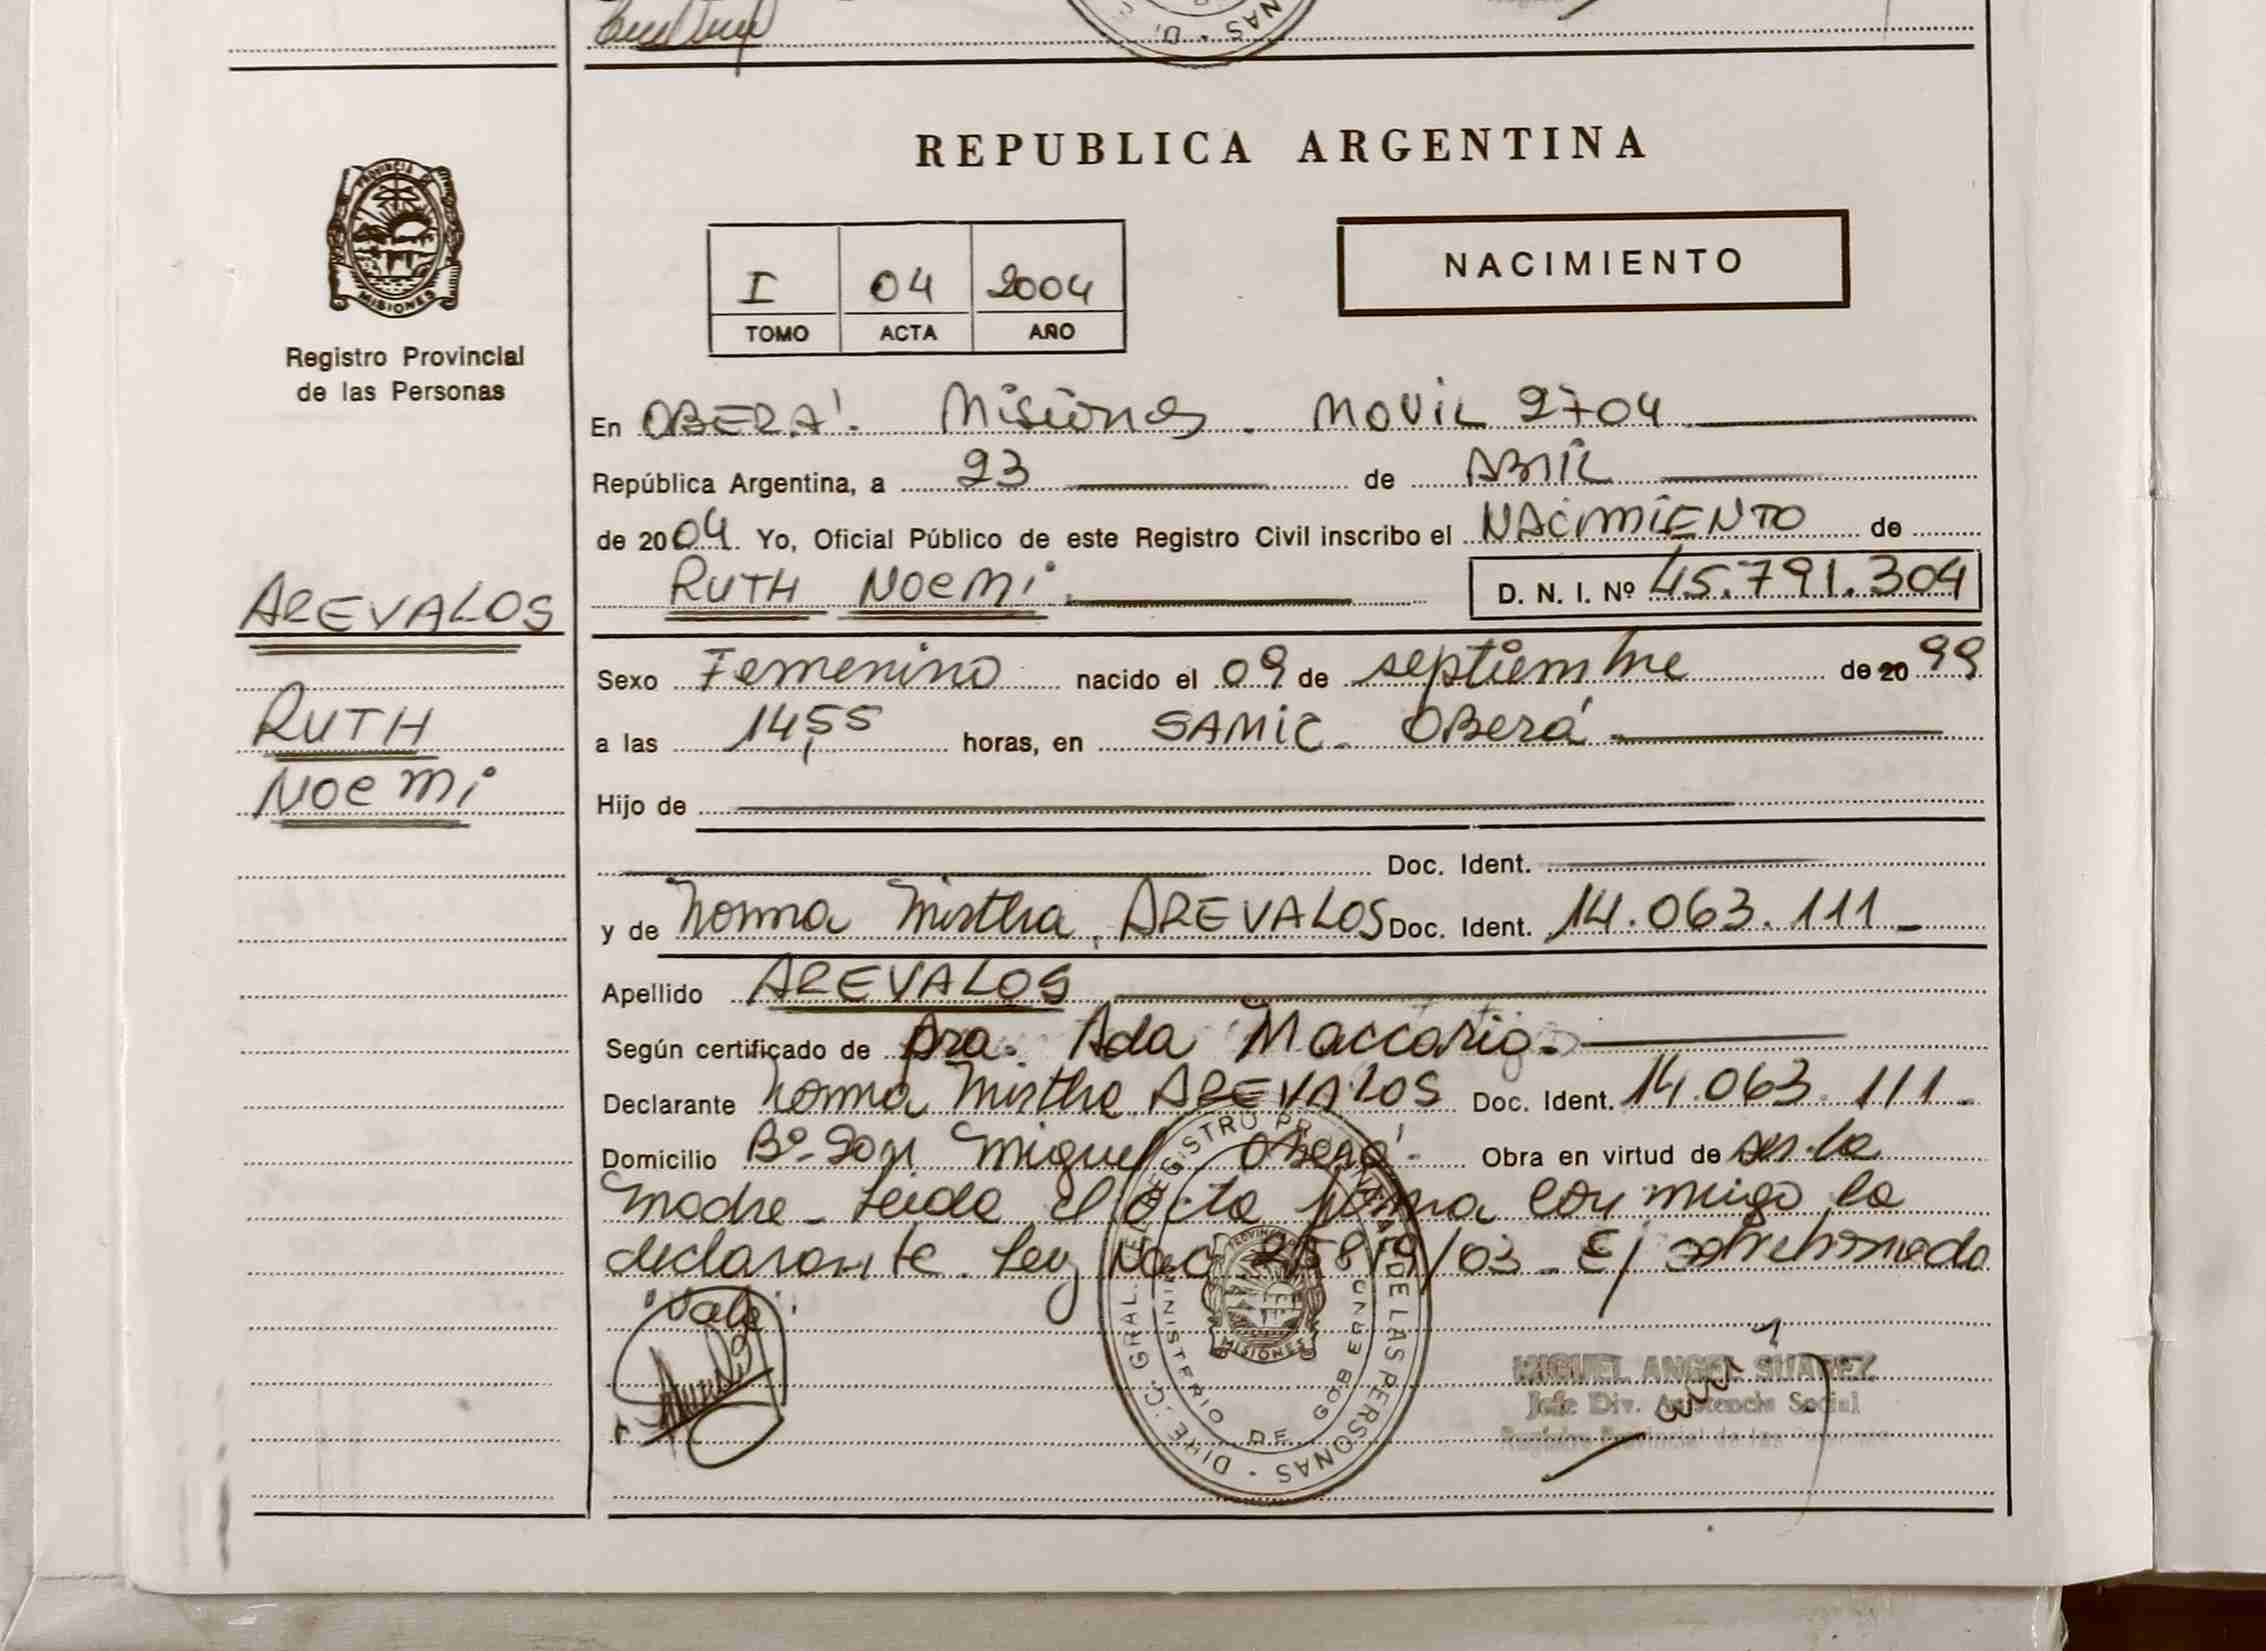 REPUBLICA ARGENTINA
PROVINCIA DE MISIONES
Registro Provincial
de las Personas
NACIMIENTO
I 04 2004
TOMO ACTA AÑO
En OBERÁ. Misiones. MOVIL 2704
República Argentina, a 23 de ABRIL
de 2004. Yo, Oficial Público de este Registro Civil inscribo el NACIMIENTO de
RUTH NOEMI. D. N. I. Nº 45.791.304
AREVALOS
RUTH
NOEMI
Sexo Femenino nacido el 09 de septiembre de 20 99
a las 14,55 horas, en SAMIC. Oberá
Hijo de
Doc. Ident.
y de Norma Mirtha, AREVALOS Doc. Ident. 14.063.111_
Apellido AREVALOS
Según certificado de Dra. Ada Maccario.
Declarante Norma Mirtha AREVALOS Doc. Ident. 14.063.111_
Domicilio Bº San Miguel Oberá. Obra en virtud de ser la
madre_ Leida el acta firma con migo la
declarante. Ley Nac 25819/03_ E/ sobreborrado
"Vale".
DIRE.C. GRAL. DEL REGISTRO PROVINCIAL DE LAS PERSONAS
MINISTERIO DE GOBIERNO
MISIONES
MIGUEL ANGEL SUAREZ
Jefe Div. Asistencia Social
Registro Provincial de las Personas